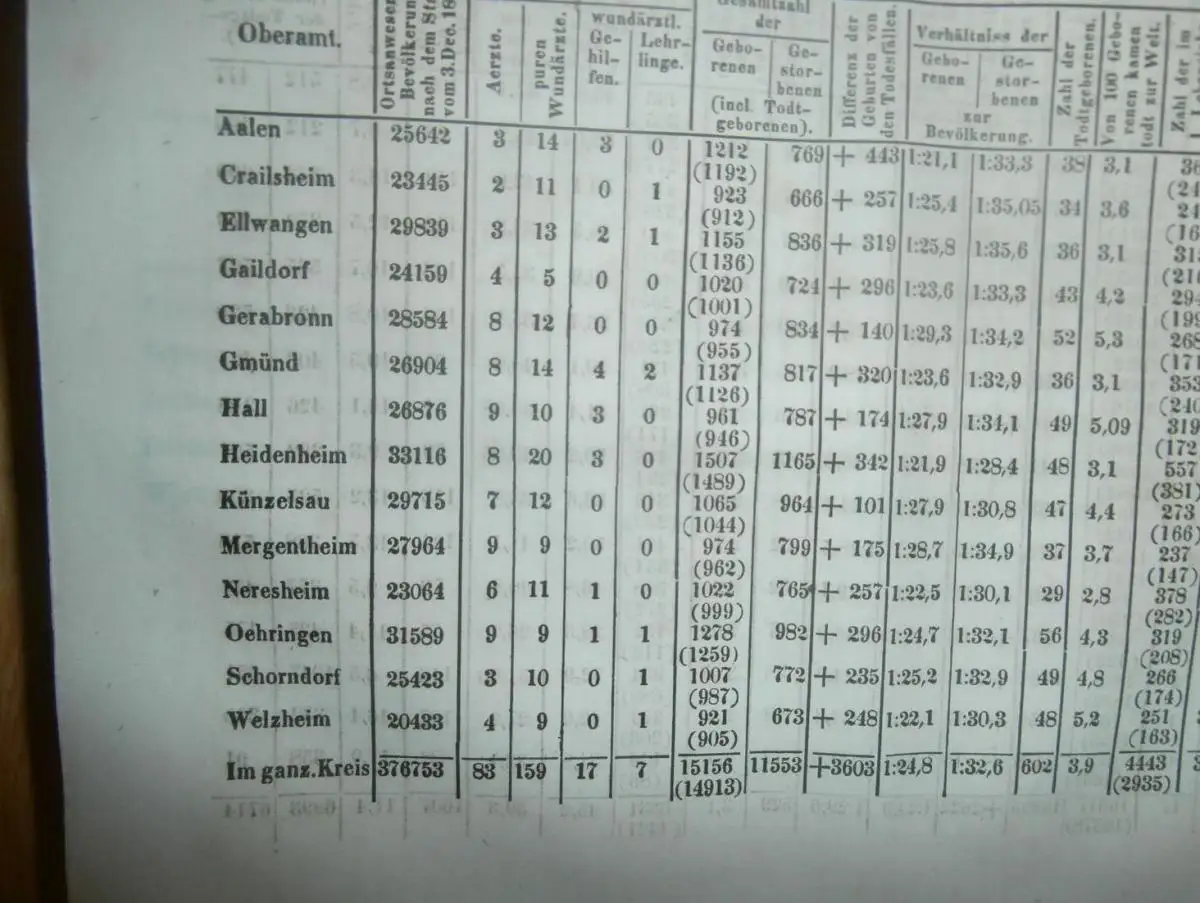 Oberamt. Ortsanwesen Bevölkerun nach dem St vom 3.Dec.18 Aerzte. puren Wundärzte. wundärztl. Ge- hil- fen. Lehr- linge. Gesamtzahl der Gebo- renen Ge- stor- benen (incl. Todt- geborenen). Differenz der Geburten von den Todesfällen. Verhältniss der Gebo- renen Ge- stor- benen zur Bevölkerung. Zahl der Todtgeborenen. Von 100 Gebo- renen kamen todt zur Welt. Zahl der im
Aalen 25642 3 14 3 0 1212 769 + 443 1:21,1 1:33,3 38 3,1 36
(1192) (24
Crailsheim 23445 2 11 0 1 923 666 + 257 1:25,4 1:35,05 34 3,6 24
(912) (16
Ellwangen 29839 3 13 2 1 1155 836 + 319 1:25,8 1:35,6 36 3,1 31
(1136) (21
Gaildorf 24159 4 5 0 0 1020 724 + 296 1:23,6 1:33,3 43 4,2 29
(1001) (199
Gerabronn 28584 8 12 0 0 974 834 + 140 1:29,3 1:34,2 52 5,3 268
(955) (171
Gmünd 26904 8 14 4 2 1137 817 + 320 1:23,6 1:32,9 36 3,1 353
(1126) (240
Hall 26876 9 10 3 0 961 787 + 174 1:27,9 1:34,1 49 5,09 319
(946) (172
Heidenheim 33116 8 20 3 0 1507 1165 + 342 1:21,9 1:28,4 48 3,1 557
(1489) (381)
Künzelsau 29715 7 12 0 0 1065 964 + 101 1:27,9 1:30,8 47 4,4 273
(1044) (166)
Mergentheim 27964 9 9 0 0 974 799 + 175 1:28,7 1:34,9 37 3,7 237
(962) (147)
Neresheim 23064 6 11 1 0 1022 765 + 257 1:22,5 1:30,1 29 2,8 378
(999) (282)
Oehringen 31589 9 9 1 1 1278 982 + 296 1:24,7 1:32,1 56 4,3 319
(1259) (208)
Schorndorf 25423 3 10 0 1 1007 772 + 235 1:25,2 1:32,9 49 4,8 266
(987) (174)
Welzheim 20433 4 9 0 1 921 673 + 248 1:22,1 1:30,3 48 5,2 251
(905) (163)
Im ganz.Kreis 376753 83 159 17 7 15156 11553 +3603 1:24,8 1:32,6 602 3,9 4443
(14913) (2935)